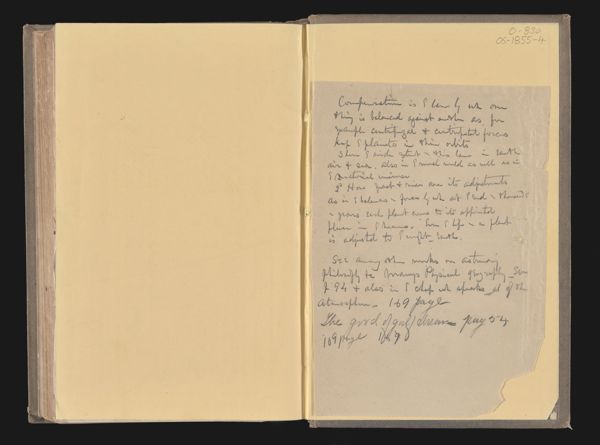 O-830
OS-1855-4
Compensation is law by wh one
thing is balanced against another as for
example centrifugal & centripetal forces
keep planets in their orbits
Show wide extent this law in earth
air & sea. also in moral world as well as in
material universe
2° How vast & nice are its adjustments
as in balance forces by wh at end thousands
years each plant comes to its appointed
place in heavens. How life a plant
is adjusted to weight earth.
See among other works on astronomy
Philosophy &c Maury's Physical Geography See
p 94 & also in chap wh speaks of the
Atmosphere. 169 page
The good of gulf stream page 54
169 page 169